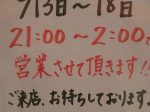 9/13日〜18日
21:00〜2:00で
営業させて頂きます!!
ご来店、お待ちしております